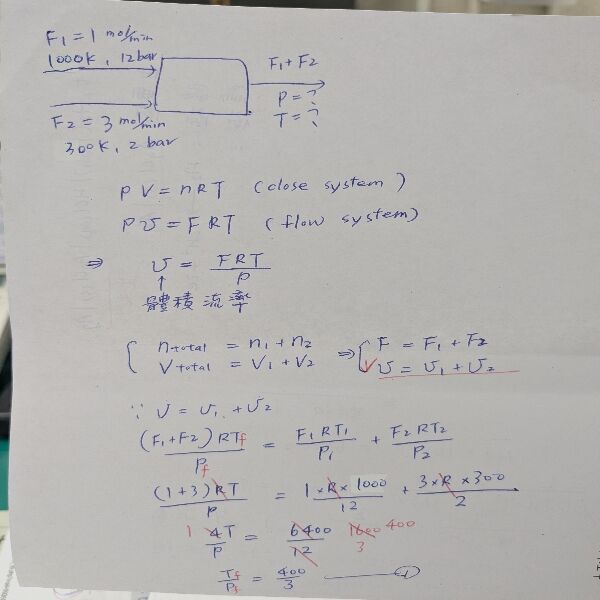 F1 = 1 mol/min
1000K, 12bar
F1+F2
P = ?
T = ?
F2 = 3 mol/min
300K, 2 bar
PV = nRT (close system)
Pυ = FRT (flow system)
⇒ υ = FRT/P
↑
體積流率
{ ntotal = n1 + n2 ⇒ { F = F1 + F2
Vtotal = V1 + V2 υ = υ1 + υ2
∵ υ = υ1 + υ2
(F1+F2)RTf/Pf = F1RT1/P1 + F2RT2/P2
(1+3)RT/P = 1×R×1000/12 + 3×R×300/2
1 4T/P = 6400/12 1600/3 400
Tf/Pf = 400/3 ——①